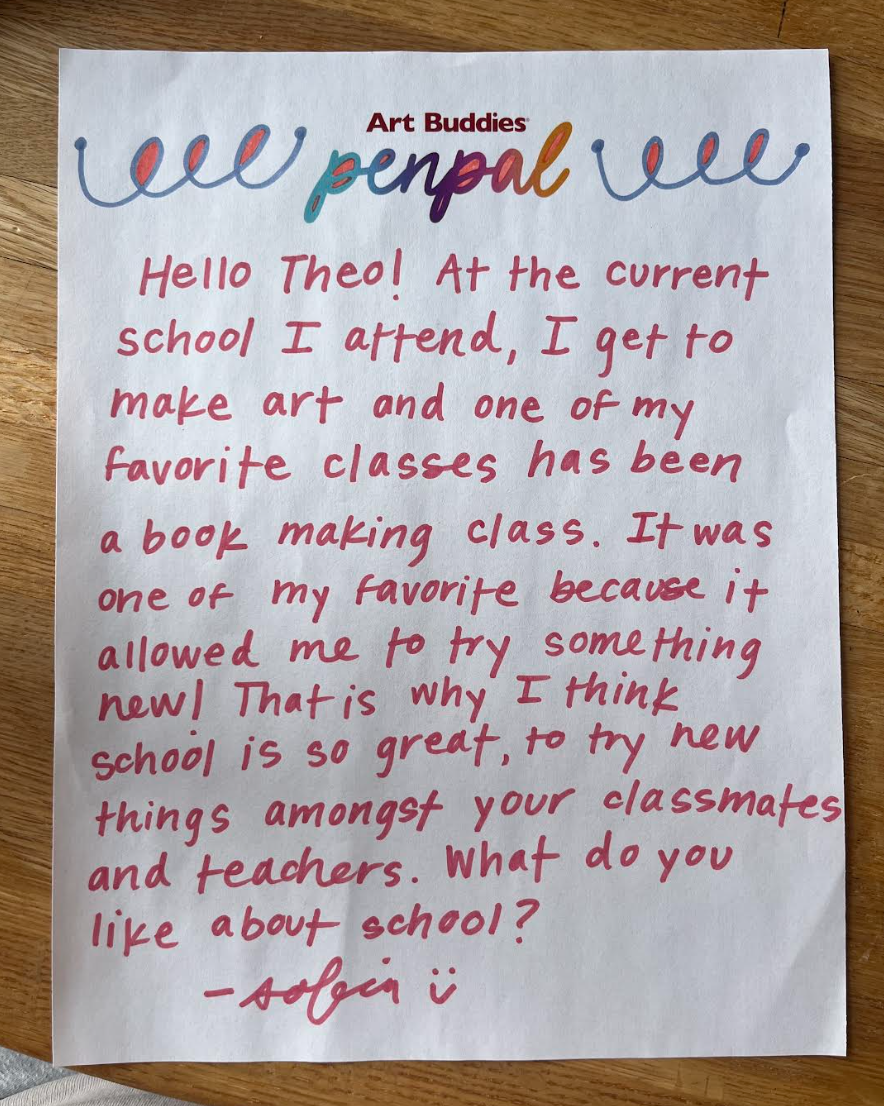 Art Buddies
penpal
Hello Theo! At the current
school I attend, I get to
make art and one of my
favorite classes has been
a book making class. It was
one of my favorite because it
allowed me to try something
new! That is why I think
school is so great, to try new
things amongst your classmates
and teachers. What do you
like about school?